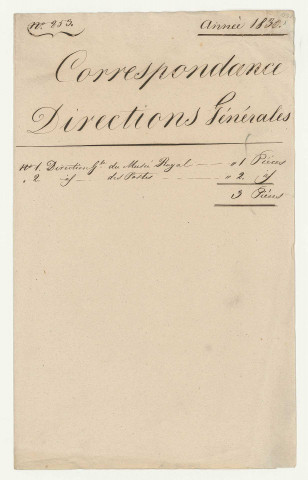 No. 253.
Année 1830.
Correspondance
Directions Générales
No. 1. Direction Gle. du Musée Royal — — " 1 Pièces
" 2 id — des Postes — — — " 2 id
3 Pièces